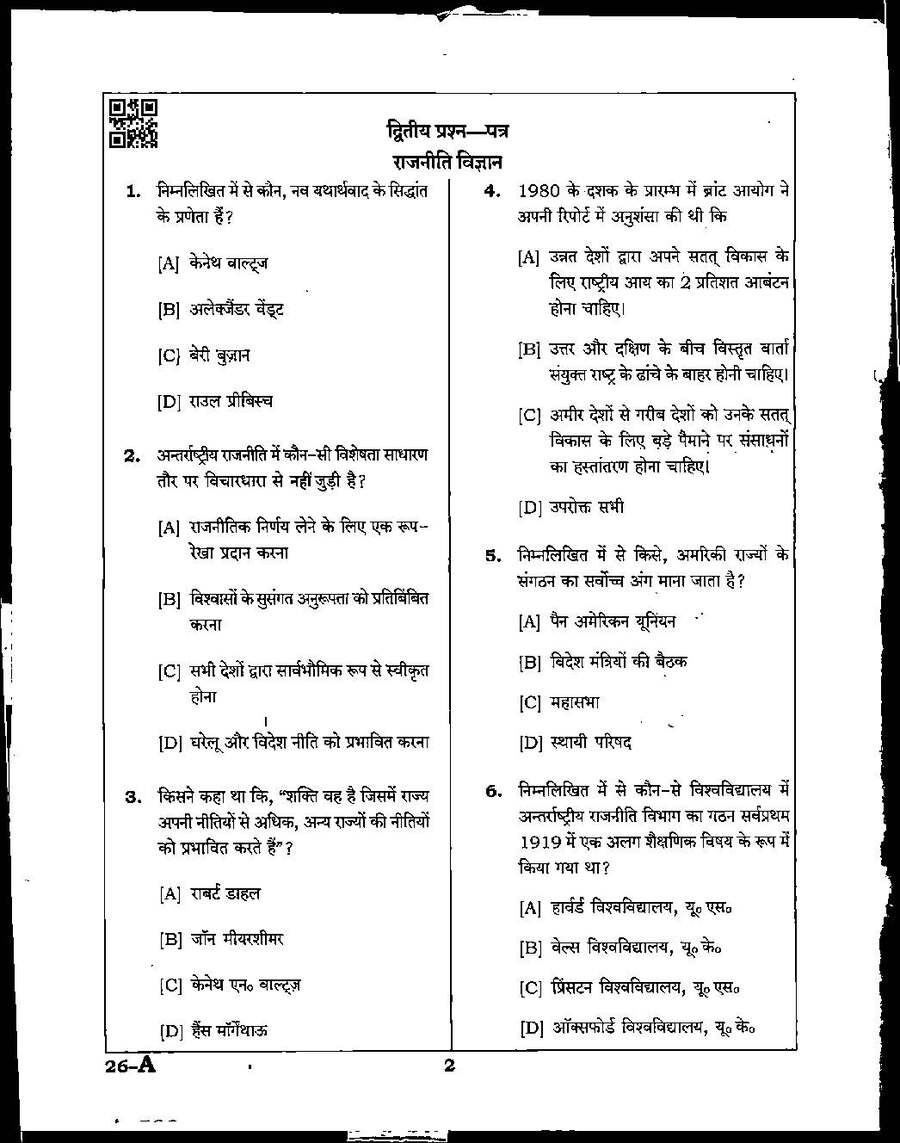 द्वितीय प्रश्न—पत्र
राजनीति विज्ञान
1. निम्नलिखित में से कौन, नव यथार्थवाद के सिद्धांत
के प्रणेता हैं?
[A] केनेथ वाल्ट्ज
[B] अलेक्जैंडर वेंड्ट
[C] बेरी बुज़ान
[D] राउल प्रीबिस्च
2. अन्तर्राष्ट्रीय राजनीति में कौन-सी विशेषता साधारण
तौर पर विचारधारा से नहीं जुड़ी है?
[A] राजनीतिक निर्णय लेने के लिए एक रूप-
रेखा प्रदान करना
[B] विश्वासों के सुसंगत अनुरूपता को प्रतिबिंबित
करना
[C] सभी देशों द्वारा सार्वभौमिक रूप से स्वीकृत
होना
[D] घरेलू और विदेश नीति को प्रभावित करना
3. किसने कहा था कि, “शक्ति वह है जिसमें राज्य
अपनी नीतियों से अधिक, अन्य राज्यों की नीतियों
को प्रभावित करते हैं”?
[A] राबर्ट डाहल
[B] जॉन मीयरशीमर
[C] केनेथ एन० वाल्ट्ज़
[D] हैंस मॉर्गेंथाऊ
4. 1980 के दशक के प्रारम्भ में ब्रांट आयोग ने
अपनी रिपोर्ट में अनुशंसा की थी कि
[A] उन्नत देशों द्वारा अपने सतत् विकास के
लिए राष्ट्रीय आय का 2 प्रतिशत आबंटन
होना चाहिए।
[B] उत्तर और दक्षिण के बीच विस्तृत वार्ता
संयुक्त राष्ट्र के ढांचे के बाहर होनी चाहिए।
[C] अमीर देशों से गरीब देशों को उनके सतत्
विकास के लिए बड़े पैमाने पर संसाधनों
का हस्तांतरण होना चाहिए।
[D] उपरोक्त सभी
5. निम्नलिखित में से किसे, अमरिकी राज्यों के
संगठन का सर्वोच्च अंग माना जाता है?
[A] पैन अमेरिकन यूनियन
[B] विदेश मंत्रियों की बैठक
[C] महासभा
[D] स्थायी परिषद
6. निम्नलिखित में से कौन-से विश्वविद्यालय में
अन्तर्राष्ट्रीय राजनीति विभाग का गठन सर्वप्रथम
1919 में एक अलग शैक्षणिक विषय के रूप में
किया गया था?
[A] हार्वर्ड विश्वविद्यालय, यू० एस०
[B] वेल्स विश्वविद्यालय, यू० के०
[C] प्रिंसटन विश्वविद्यालय, यू० एस०
[D] ऑक्सफोर्ड विश्वविद्यालय, यू० के०
26-A
2